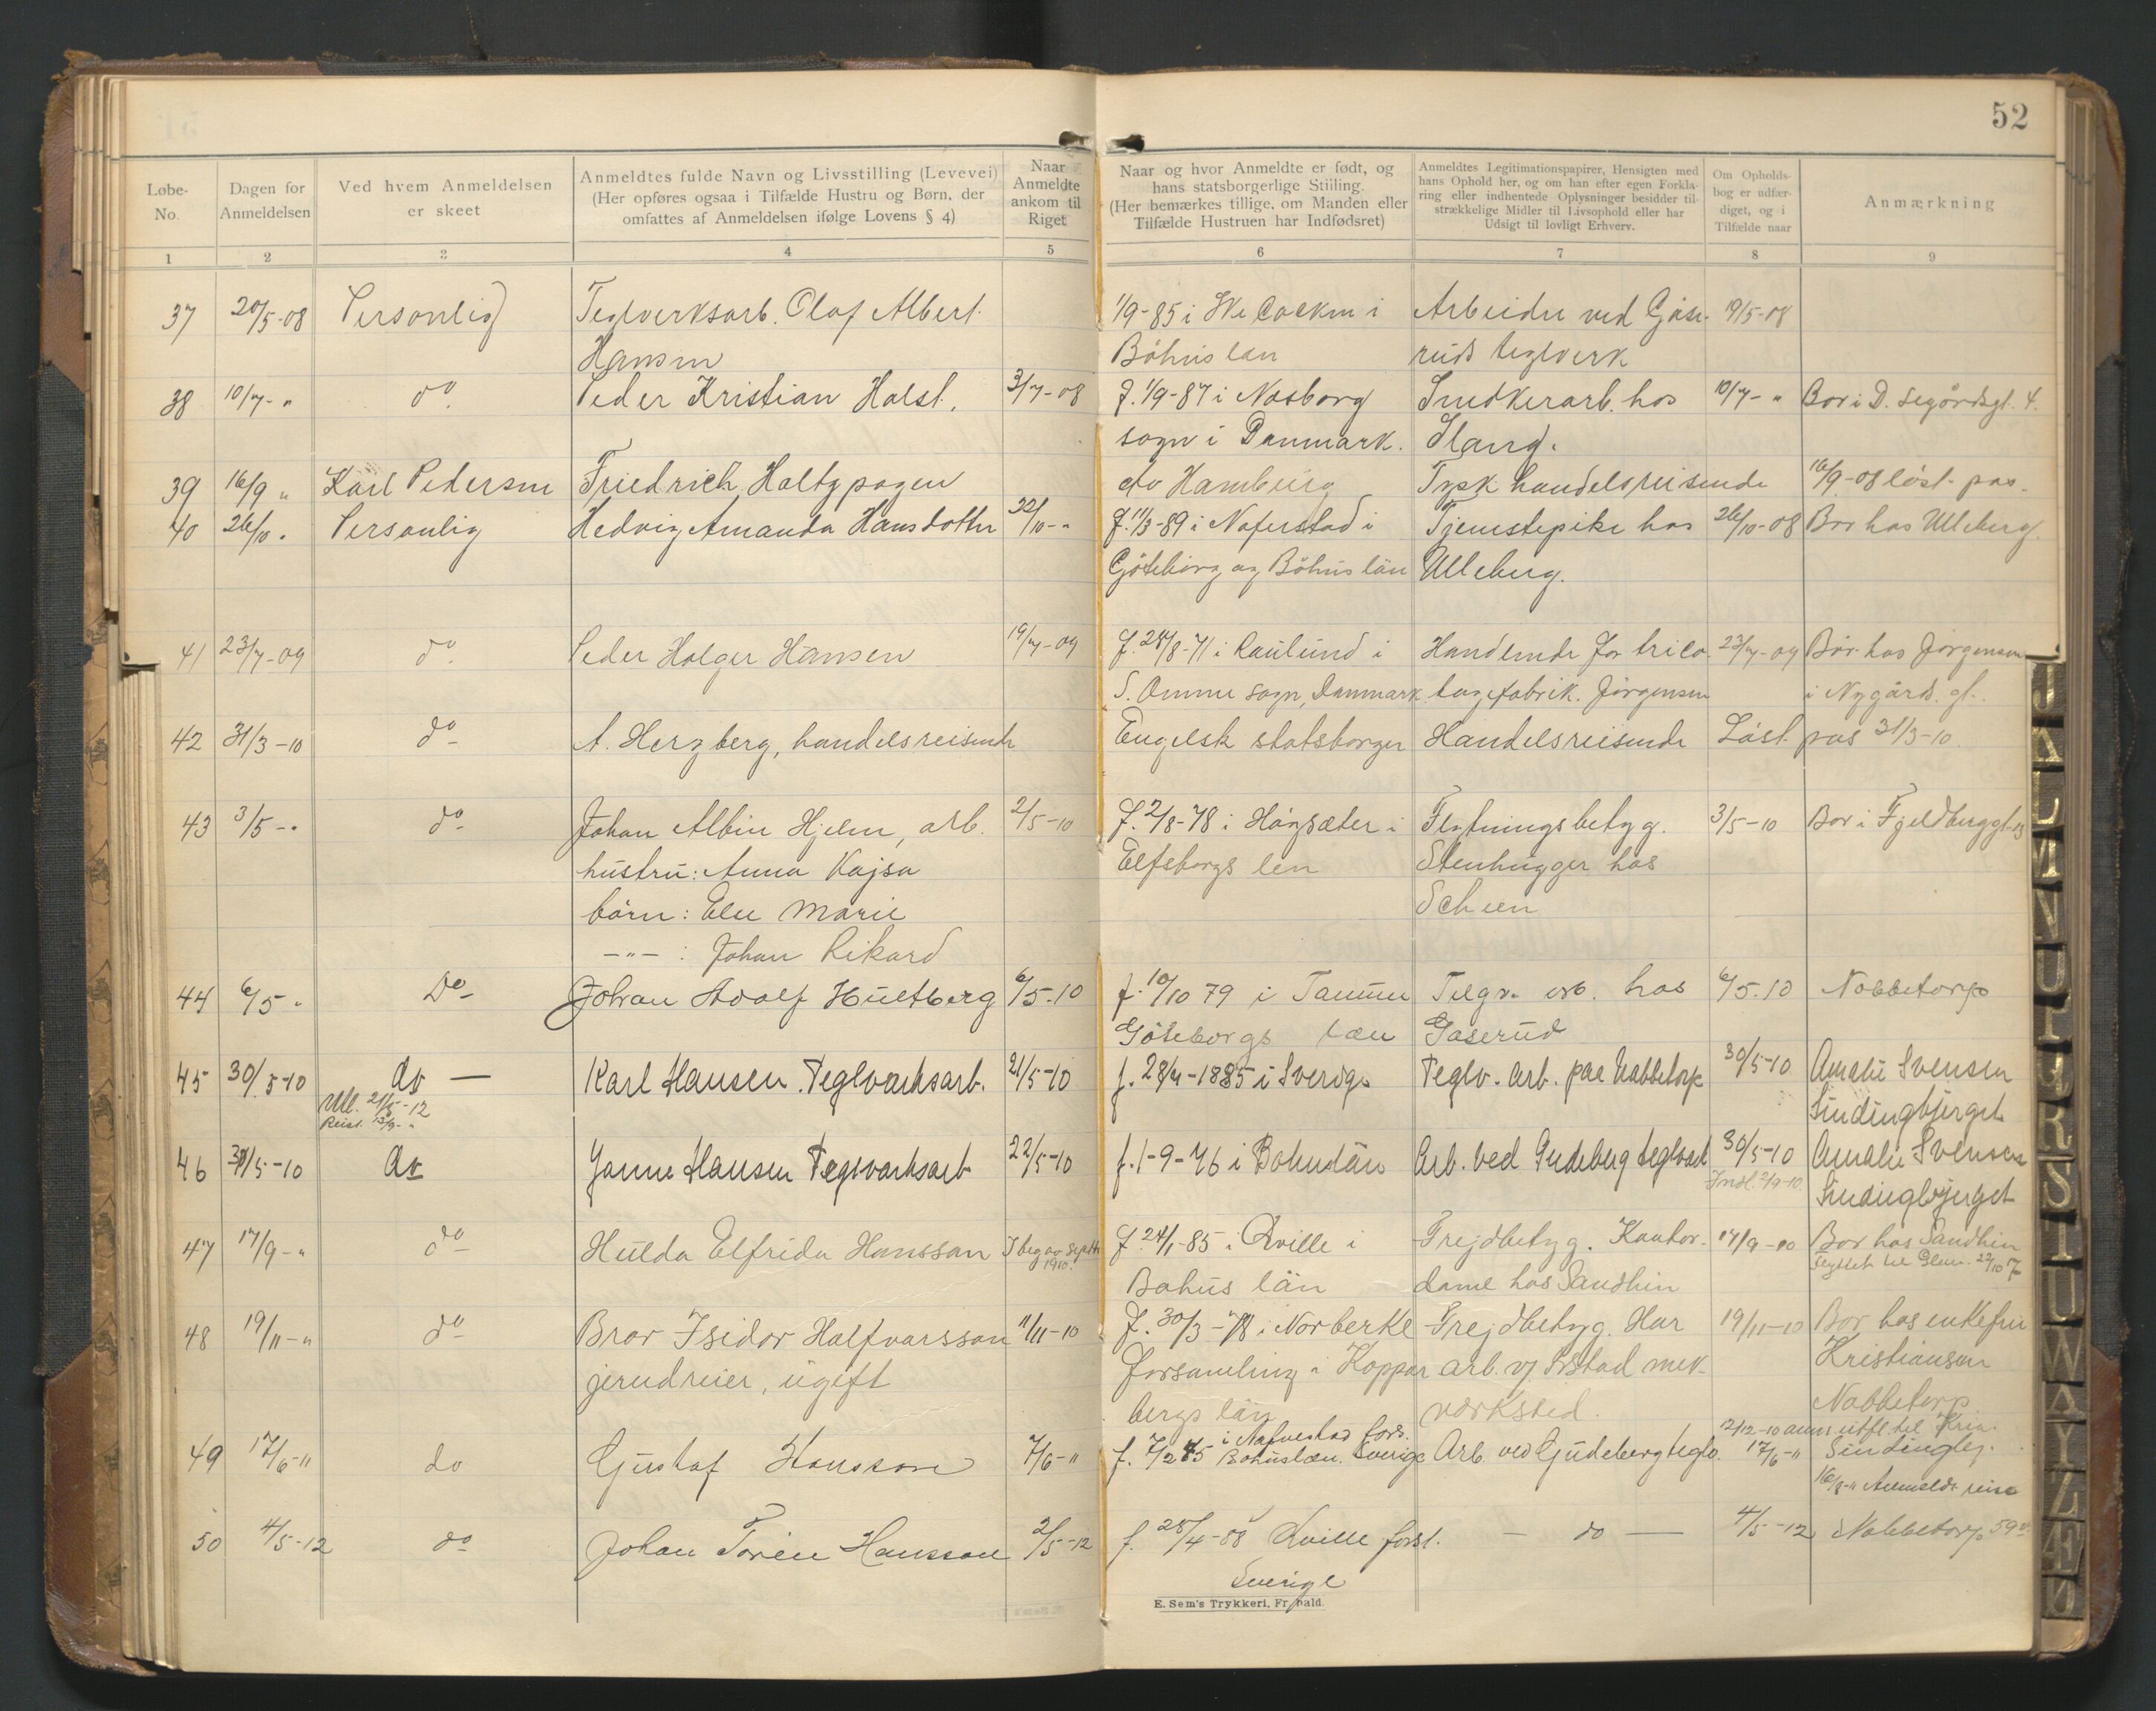 52
Løbe-
No.
Dagen for
Anmeldelsen
Ved hvem Anmeldelsen
er skeet
Anmeldtes fulde Navn og Livsstilling (Levevei)
(Her opføres ogsaa i Tilfælde Hustru og Børn, der
omfattes af Anmeldelsen ifølge Lovens § 4)
Naar
Anmeldte
ankom til
Riget
Naar og hvor Anmeldte er født, og
hans statsborgerlige Stiiling.
(Her bemærkes tillige, om Manden eller
Tilfælde Hustruen har Indfødsret)
Anmeldtes Legitimationspapirer, Hensigten med
hans Ophold her, og om han efter egen Forkla-
ring eller indhentede Oplysninger besidder til-
strækkelige Midler til Livsophold eller har
Udsigt til lovligt Erhverv.
Om Opholds-
bog er udfær-
diget, og i
Tilfælde naar
Anmærkning
1 2 3 4 5 6 7 8 9
37 20/5-08 Personlig Teglverksarb. Olaf Albert 1/9-85 i Arbeider ved Gåse- 19/5-08
Hansen Bóhus län ruds teglverk
38 10/7-" do. Peder Kristian Holst. 3/7-08 f. 1/9-87 i Nasborg Snedkerarb. hos 10/7-" Bor i D. Segårdsgt. 4.
sogn i Danmark. Stang.
39 16/9 " Karl Pedersen Friedrich Holtzpagen av Hamburg Tysk handelsreisende 16/9-08 löst pas.
40 26/10 " Personlig Hedvig Amanda Hansdotter 22/10-" f. 11/3-89 i Naferstad i Tjenestepike hos 26/10-08 Bor hos Ulleberg.
Göteborg og Bóhus län Ulleberg.
41 23/7-09 do. Peder Holger Hansen 19/7-09 f. 28/8-71 i Raulund i Handlende for trico- 23/7-09 Bor hos Jörgensen
S. Omme sogn, Danmark tagefabrik. Jörgensen i Nygårds. gt.
42 31/3-10 do A. Herzberg, handelsreisende Engelsk statsborger Handelsreisende Löst pas 31/3-10
43 3/5-" do Johan Albin Hjelm, arb. 2/5-10 f. 2/8-78 i Högsæter i Flytningsbetyg. 3/5-10 Bor i Fjeldberggt. 13
hustru: Anna Kajsa Elfsborgs len Stenhugger hos
börn: Else Marie Scheen
-"- : Johan Rikard
44 6/5 " Do Johan Adolf Hultberg 6/5-10 f. 10/10 79 i Tanum Telgv. arb. hos 6/5.10 Nabbetorp
Göteborgs læn Gaserud
45 30/5-10 do — Karl Hansen. Teglværksarb. 21/5-10 f. 28/4-1885 i Sverige Teglv. Arb. paa Nabbetorp 30/5-10 Amalie Svensen
Utl. 21/5-12 Sindingbjerget
Reist 13/9-"
46 30/5-10 do Janne Hansen Teglværksarb 22/5-10 f. 1-9-76 i Bohuslän Arb. ved Gudeberg teglværk 30/5-10 Amalie Svensen
Indl. 2/9-10. Sindingbjerget
47 17/9-" do Hulda Elfrida Hansson I beg av Septbr 1910. f. 24/1-85 i Qville i Frejdbetyg. Kontor- 17/9-10 Bor hos Sandhin
Bohus län dame hos Sandhin flyttet til Glem. 22/10
48 19/11-" do Bror Isidor Halfvarsson 11/11-10 f. 30/3-78 i Norberke Frejdbetyg. Har 19/11-10 Bor hos enkefru
jerndreier, ugift forsamling i Koppar arb. v/ Ørstad mek. Kristiansen
bergs län værksted. Nabbetorp
12/12-10 anm. utfl. til Kria.
49 17/6-" do Gustaf Hansson 7/6-" f. 7/2 85 i Nafvestad fors. Bohuslæn. Sverige Arb. ved Gudeberg teglv. 17/6-" Sindingbj.
16/8-" Anmeldt reise
50 4/5-12 do Johan Toren Hansson 2/5-12 f. 28/4-88 Qville forst. — do — 4/5-12 Nabbetorp 59
Sverige
E. Sem's Trykkeri, Fr.hald.
J
L
M
N
O
P
Q
R
S
T
U
W
Y
Z
Æ
Ø